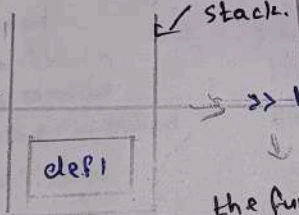 stack.
>>
def1
the fu